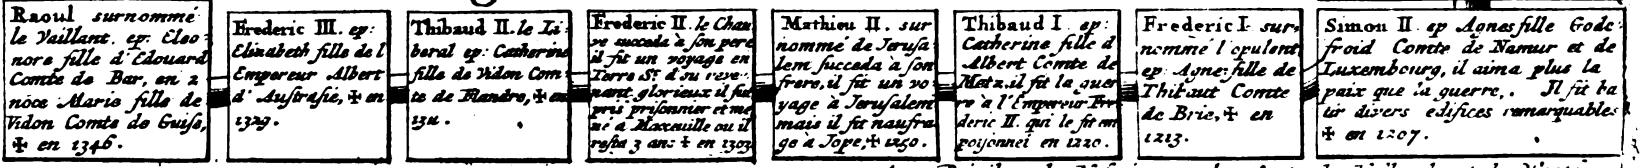 Raoul surnommé
le Vaillant. ep: Eleo-
nore fille d'Edouard
Comte de Bar, en 2
nôce Marie fille de
Vidon Comte de Guise,
✠ en 1346.
Frederic III. ep:
Elizabeth fille de l
Empereur Albert
d'Austrasie, ✠ en
1329.
Thibaud II. le Li-
beral ep: Catherine
fille de Vidon Com-
te de Flandre, ✠ en
1311.
Frederic II. le Chau
ve succeda à son pere
il fit un voyage en
Terre St. d'ou reve-
nant glorieux il fut
pris prisonnier et me
né a Maxeuille ou il
resta 3 ans ✠ en 1303
Mathieu II. sur
nommé de Jerusa
lem succeda à son
frere, il fit un vo
yage à Jerusalem
mais il fit naufra
ge a Jope, ✠ 1250.
Thibaud I. ep:
Catherine fille d
Albert Comte de
Metz, il fit la guer
re a l'Empereur Fre
deric II. qui le fit em
poisonnei en 1220.
Frederic I. sur-
nommé l'opulent
ep: Agnes fille de
Thibaut Comte
de Brie, ✠ en
1213.
Simon II. ep Agnes fille Gode-
froid Comte de Namur et de
Luxembourg, il aima plus la
paix que la guerre,. Il fit ba
tir divers edifices remarquables
✠ en 1207.